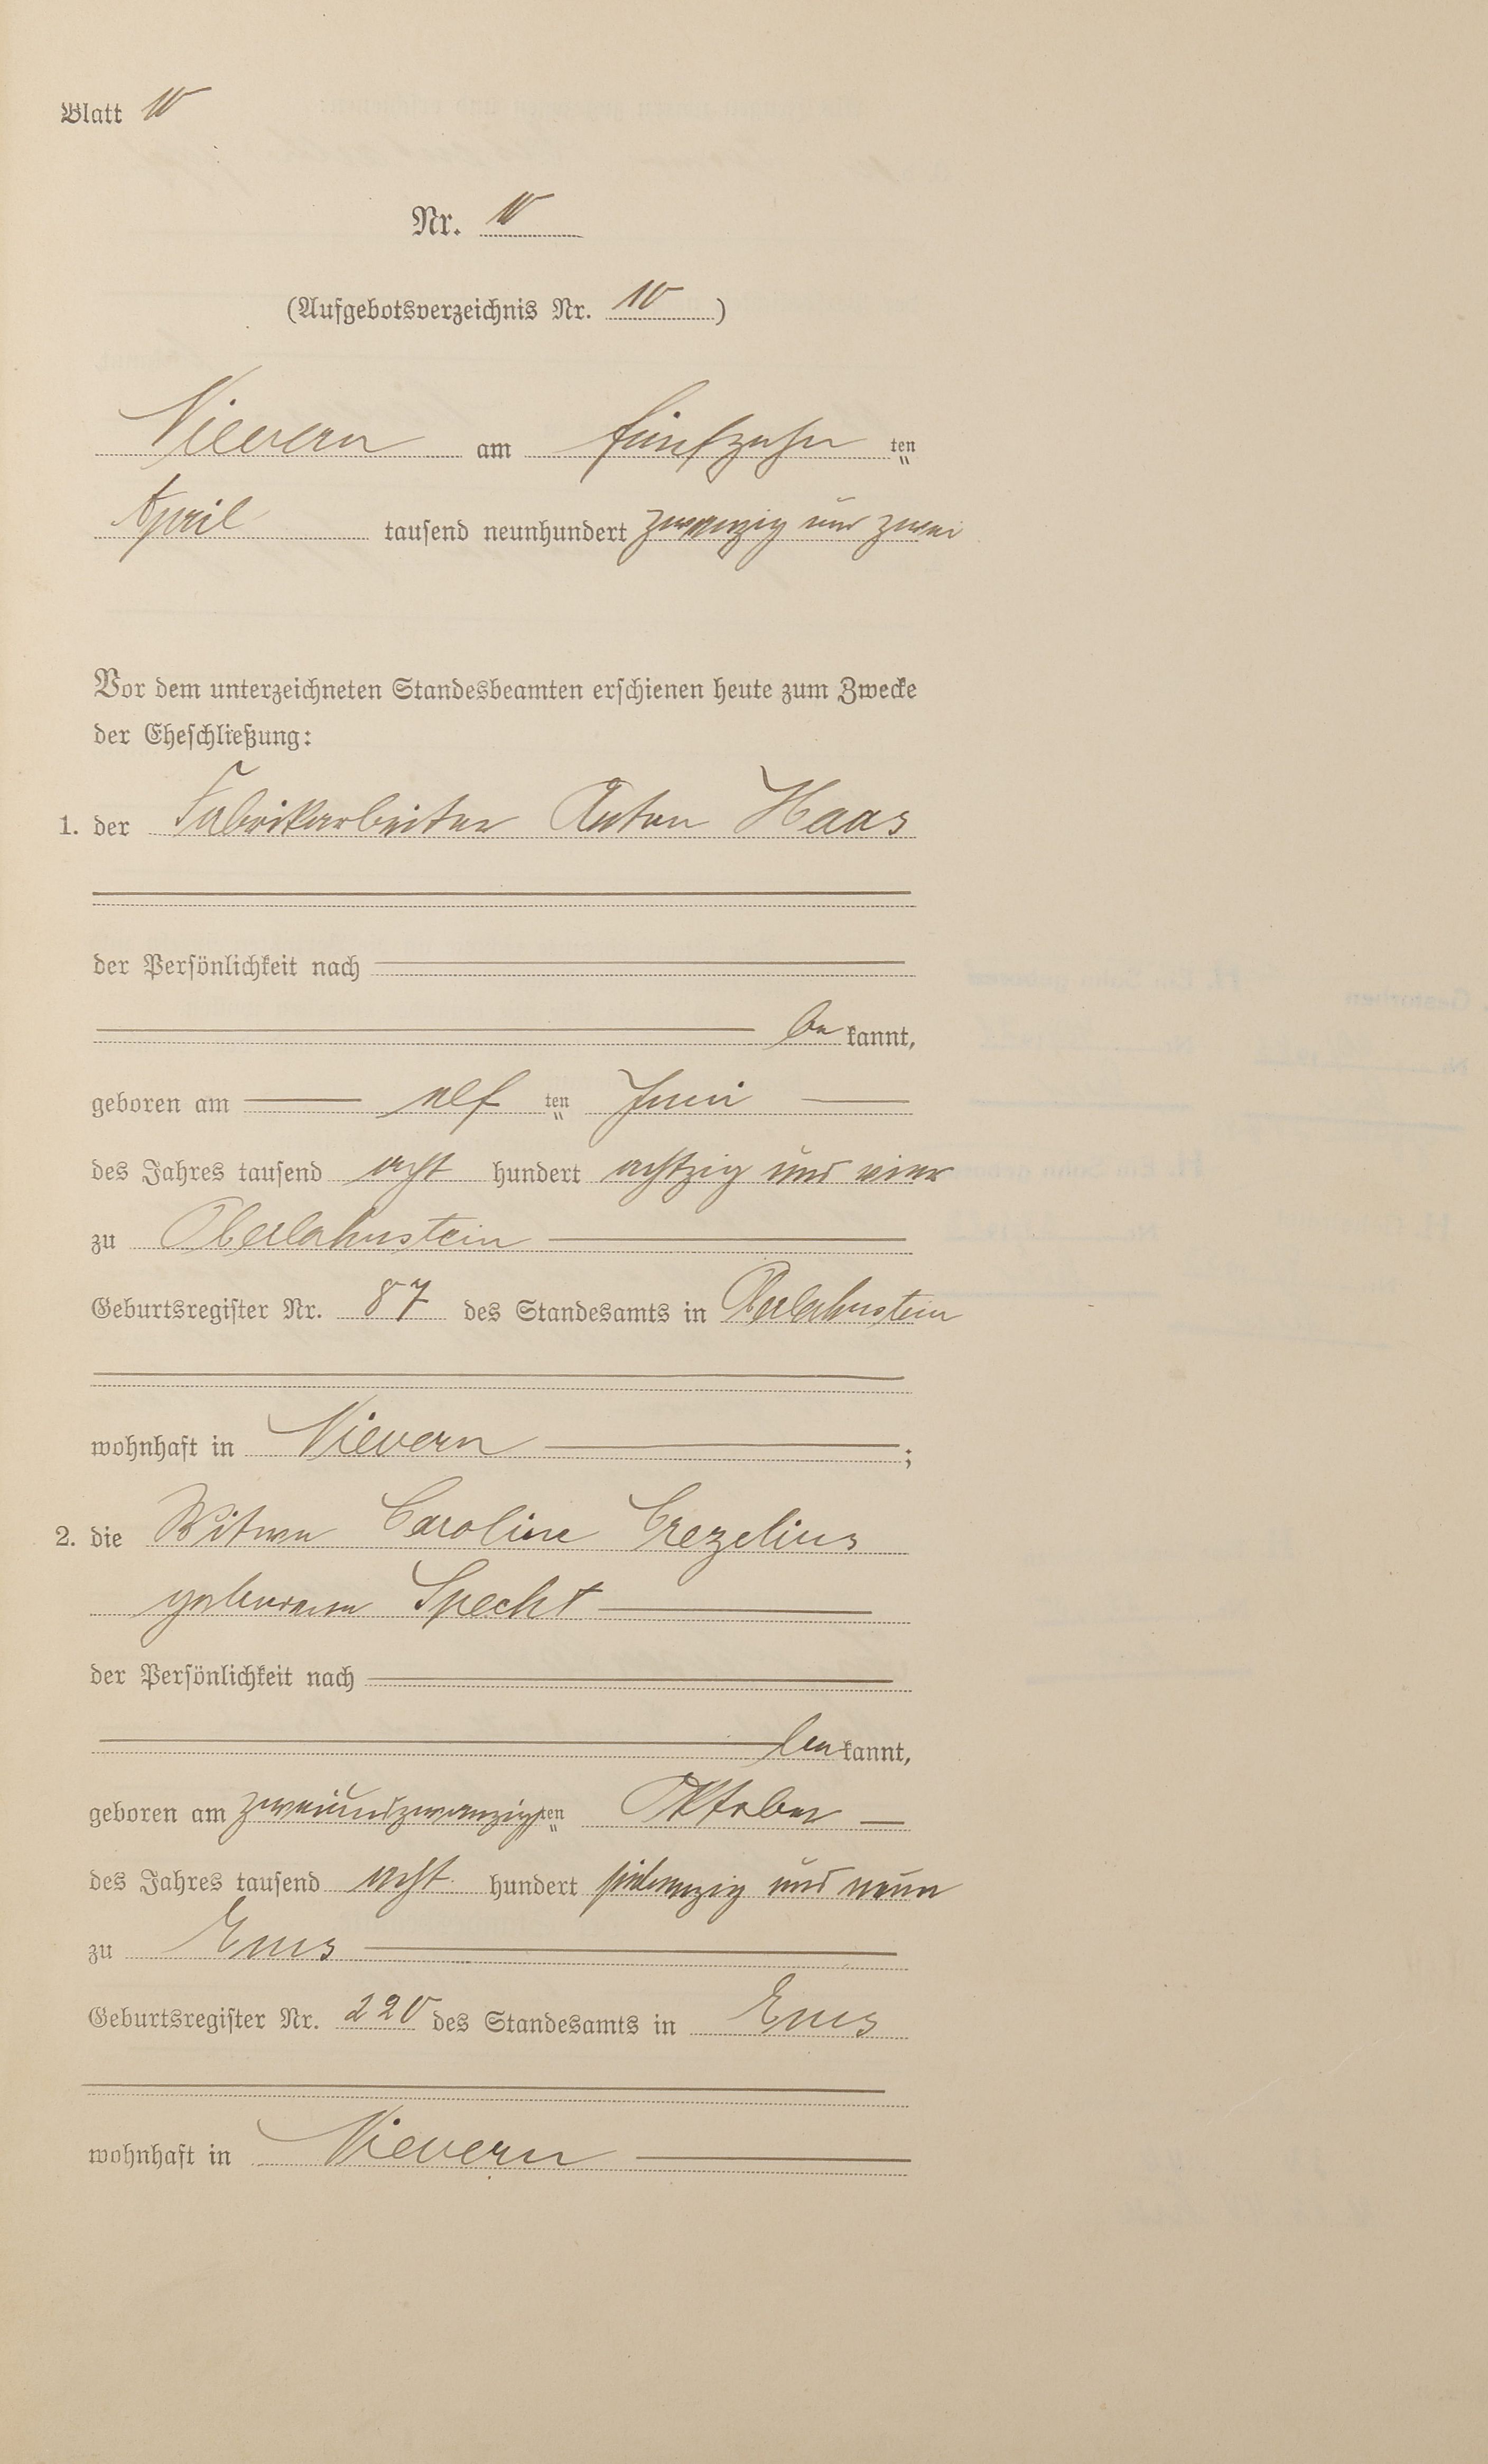 Blatt 10
Nr. 10
(Aufgebotsverzeichnis Nr. 10)
Nievern am fünfzehn ten
April tausend neunhundert zwanzig und zwei
Vor dem unterzeichneten Standesbeamten erschienen heute zum Zwecke
der Eheschließung:
1. der Fabrikarbeiter Anton Haas
der Persönlichkeit nach
be kannt,
geboren am elf ten Juni
des Jahres tausend acht hundert achtzig und vier
zu Oberlahnstein
Geburtsregister Nr. 87 des Standesamts in Oberlahnstein
wohnhaft in Nievern ;
2. die Witwe Caroline Crezelius
geborene Specht
der Persönlichkeit nach
be kannt,
geboren am zweiundzwanzigsten Oktober
des Jahres tausend acht hundert siebenzig und neun
zu Ems
Geburtsregister Nr. 220 des Standesamts in Ems
wohnhaft in Nievern